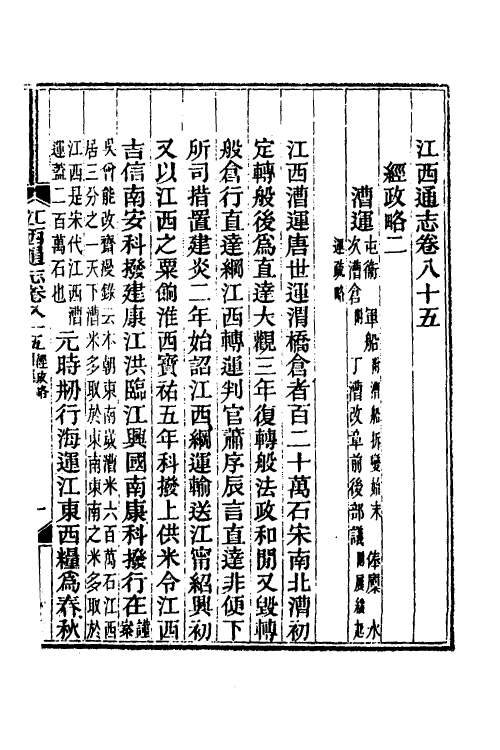 江西通志卷八十五
經政略二
漕運屯衛 軍船附漕船拆變始末 俸廉 水
次漕倉附 丁漕改章前後部議附展緩起
運疏略
江西漕運唐世運渭橋倉者百二十萬石宋南北漕初
定轉般後爲直達大觀三年復轉般法政和閒又毀轉
般倉行直達綱江西轉運判官蕭序辰言直達非便下
所司措置建炎二年始詔江西綱運輸送江甯紹興初
又以江西之粟餉淮西寶祐五年科撥上供米令江西
吉信南安科撥建康江洪臨江興國南康科撥行在謹案
吳曾能改齋漫錄云本朝東南歲漕米六百萬石江西
居三分之一天下漕米多取於東南東南之米多取於
江西是宋代江西漕
運蓋二百萬石也元時剏行海運江東西糧爲春秋
江西通志卷八十五 經政略 一